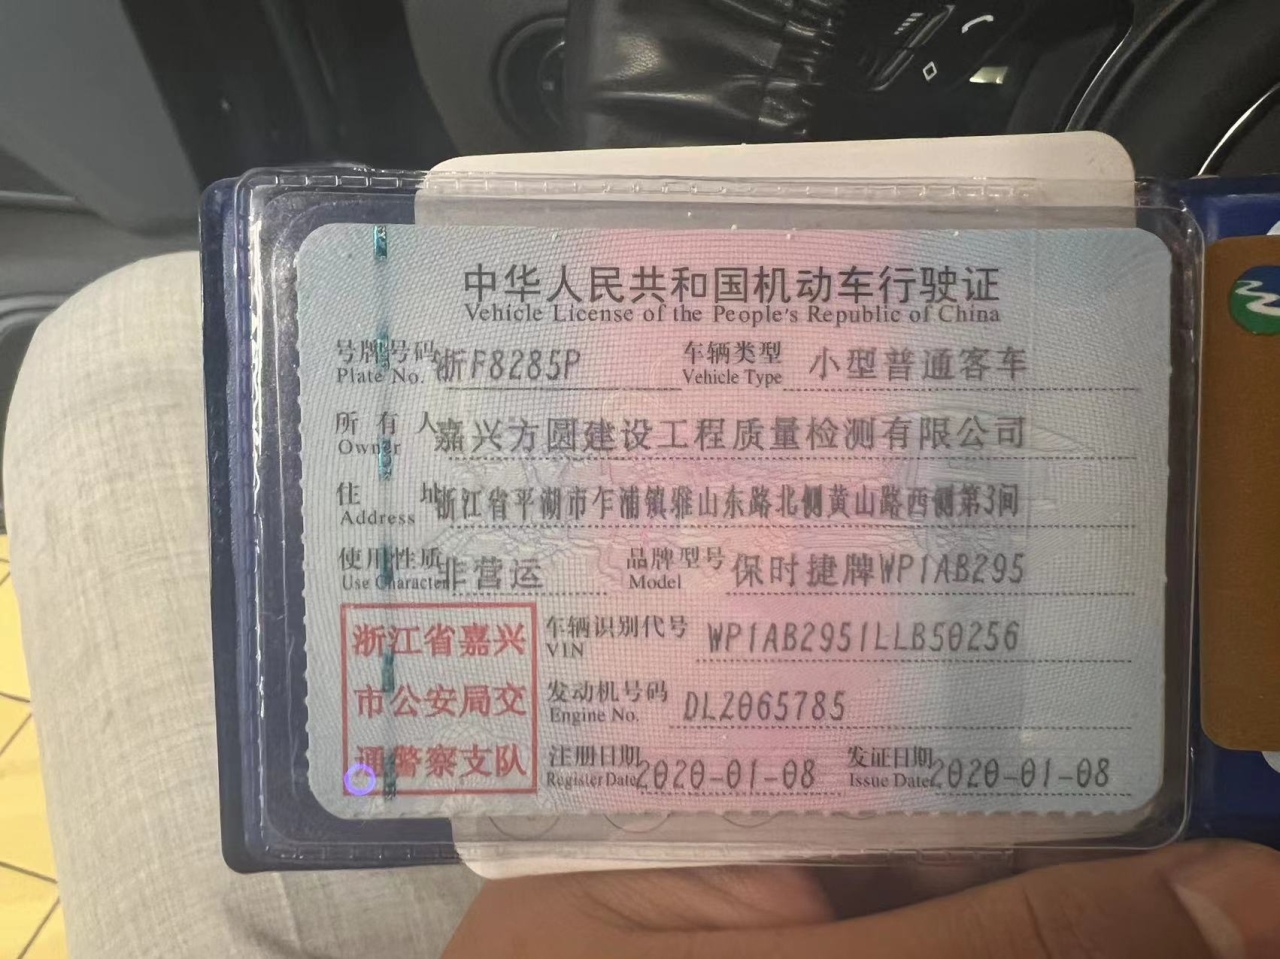 中华人民共和国机动车行驶证
Vehicle License of the People's Republic of China
号牌号码 浙F8285P 车辆类型 小型普通客车
Plate No. Vehicle Type
所有人 嘉兴方圆建设工程质量检测有限公司
Owner
住址 浙江省平湖市乍浦镇雅山东路北侧黄山路西侧第3间
Address
使用性质 非营运 品牌型号 保时捷牌WP1AB295
Use Character Model
浙江省嘉兴
市公安局交
通警察支队
车辆识别代号 WP1AB2951LLB50256
VIN
发动机号码 DLZ065785
Engine No.
注册日期 2020-01-08 发证日期 2020-01-08
Register Date Issue Date